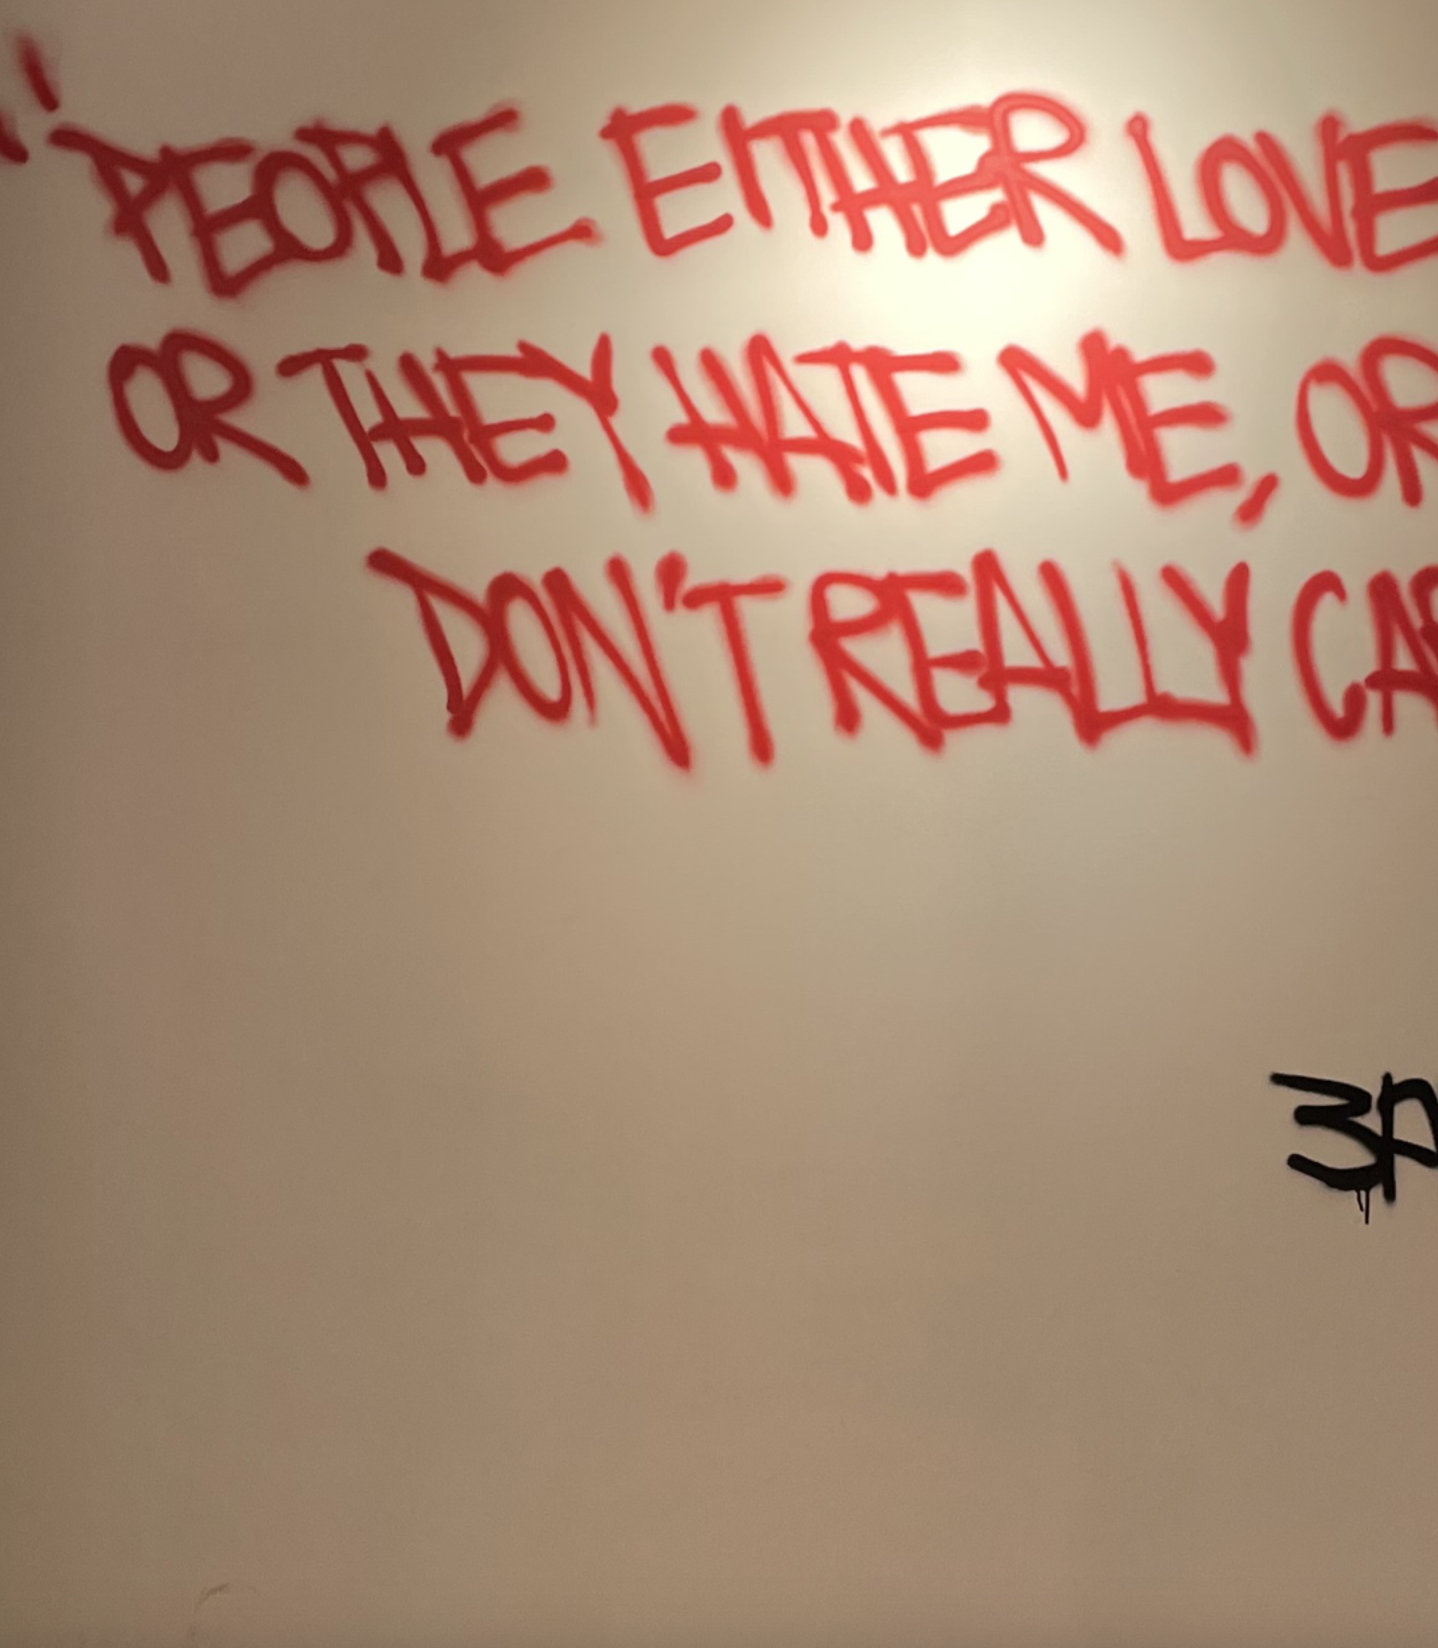 "PEOPLE EITHER LOVE
OR THEY HATE ME, OR
DON'T REALLY CA
3D